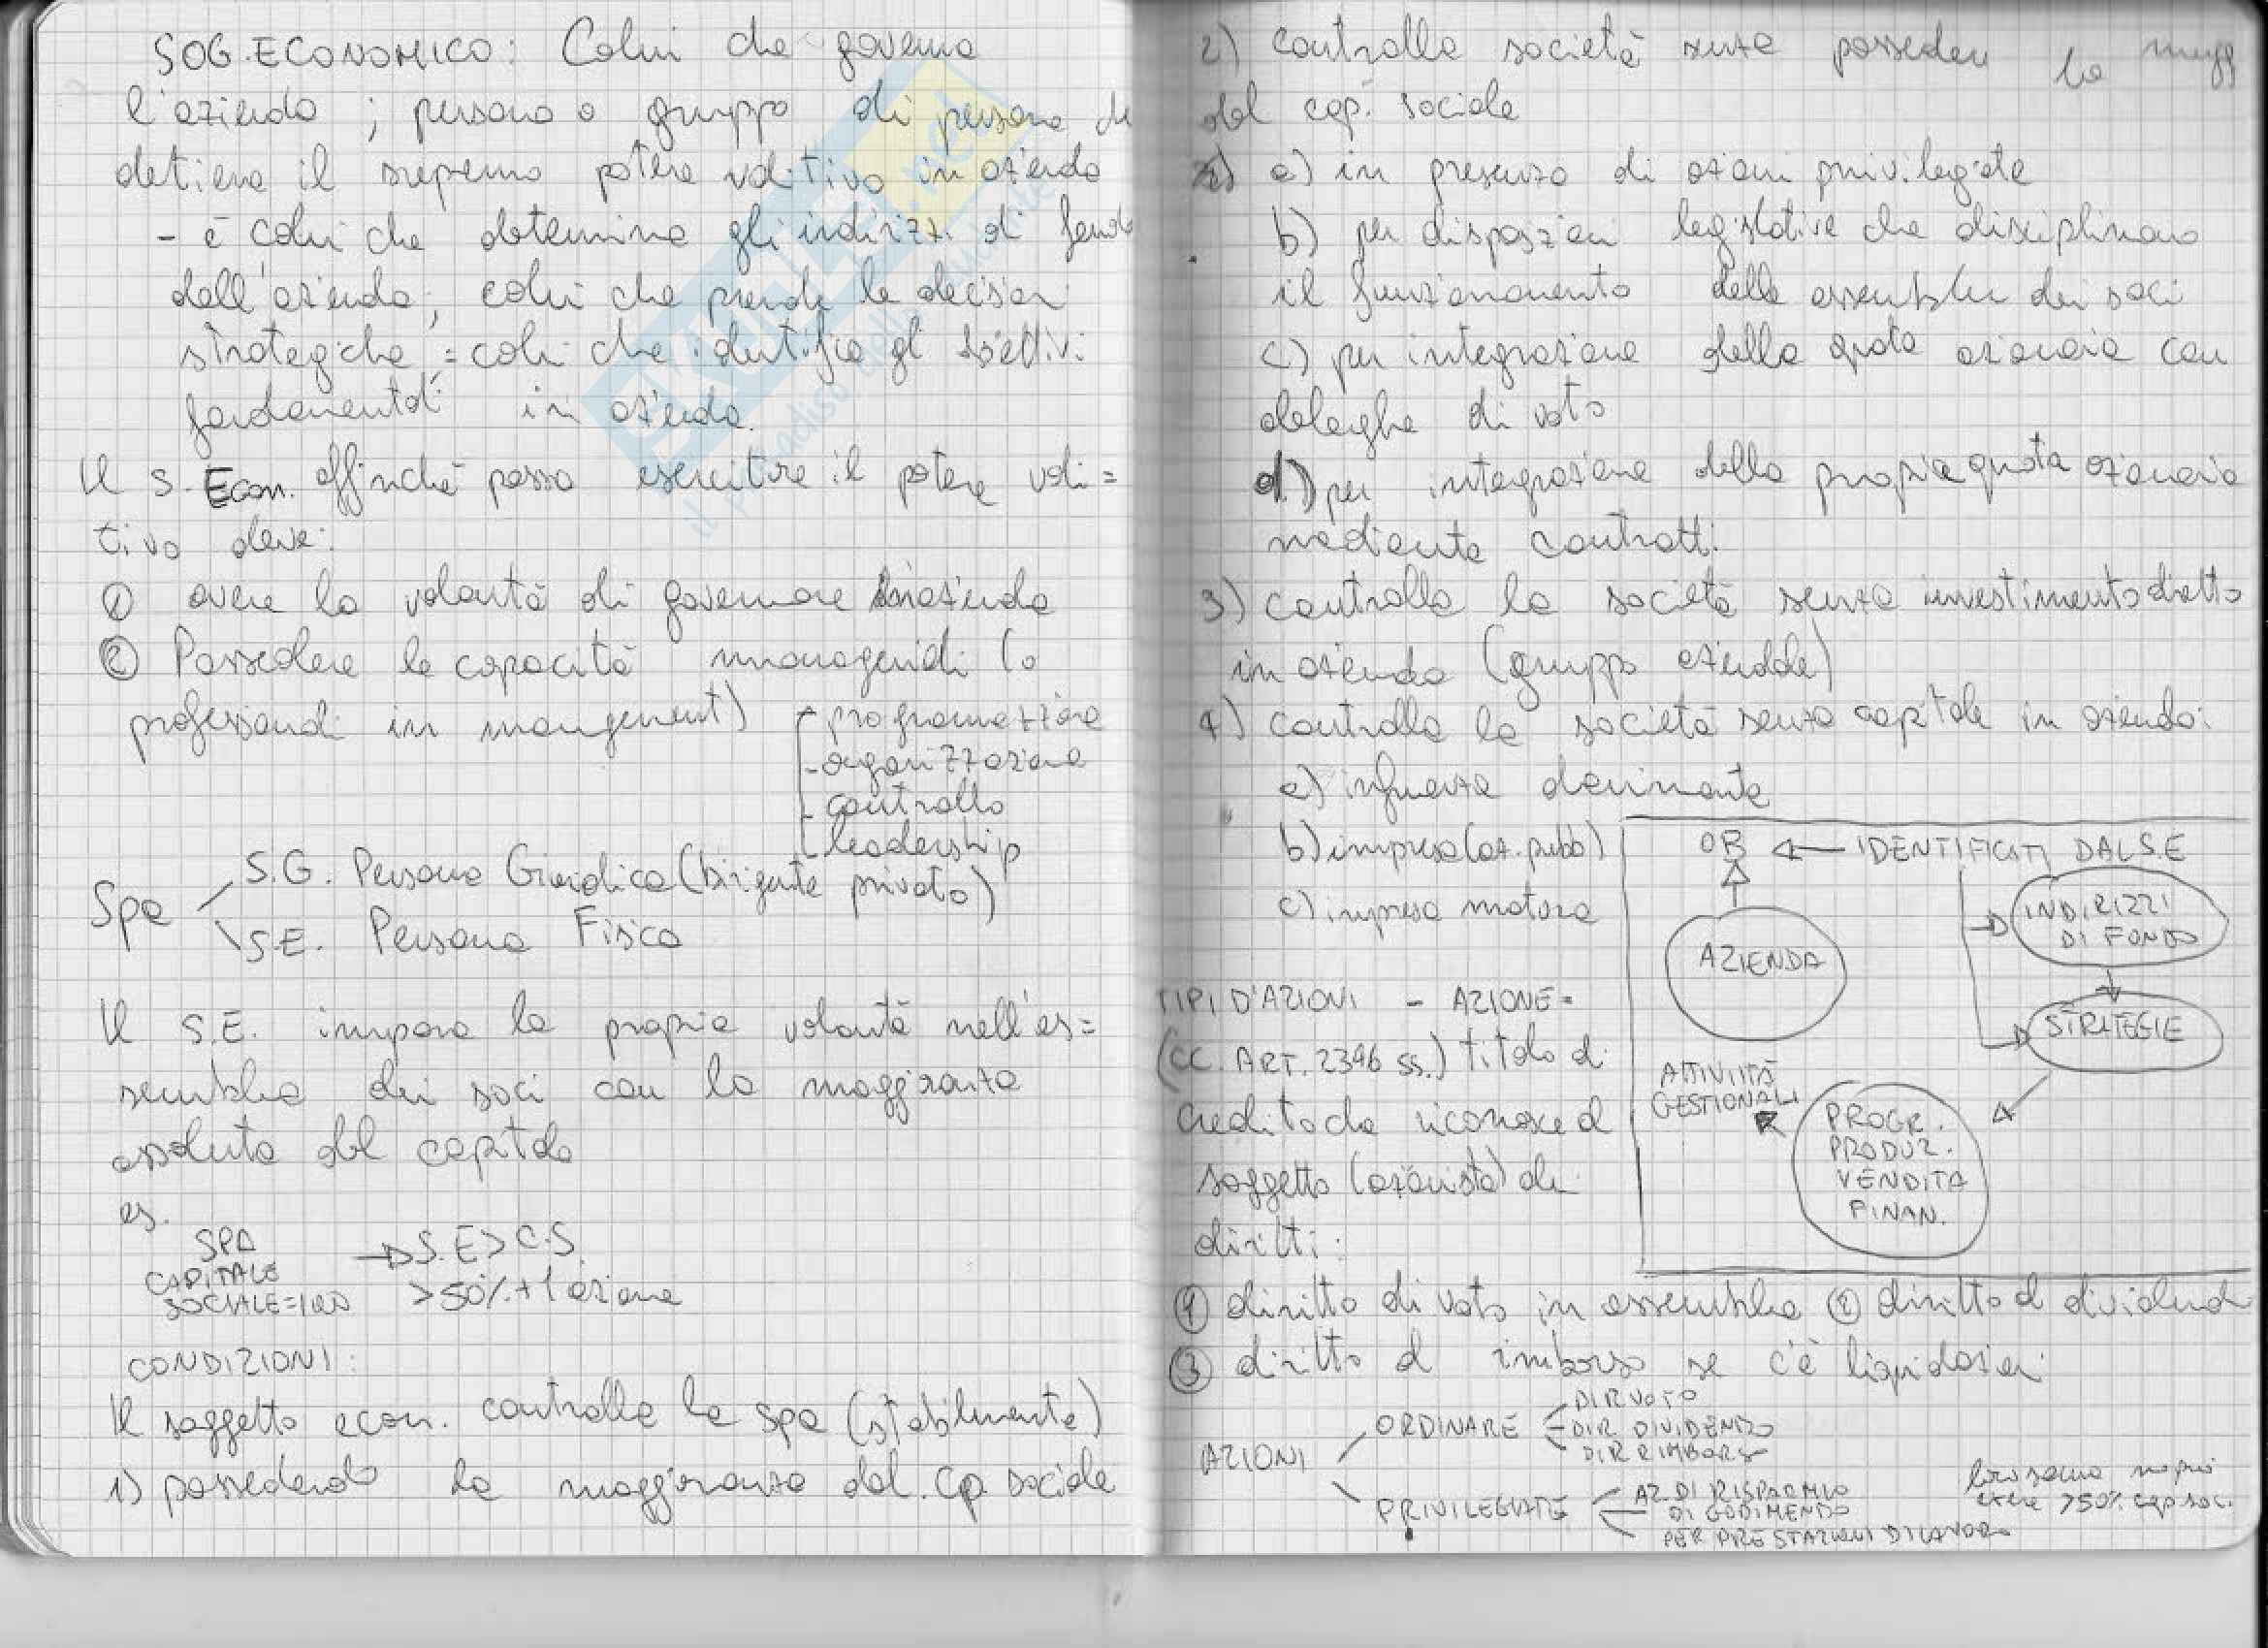 SOG. ECONOMICO: Colui che governa
l'azienda; persona o gruppo di persone che
detiene il supremo potere volitivo in azienda
- è colui che determina gli indirizzi di fondo
dell'azienda; colui che prende le decisioni
strategiche; = colui che identifica gli obiettivi
fondamentali in azienda.
Il S. Econ. affinché possa esercitare il potere voli=
tivo deve:
① avere la volontà di governare l'azienda
② Possedere le capacità manageriali (o
professionali in mangement)
- programmazione
- organizzazione
- controllo
- leadership
Spa
S.G. Persona Giuridica (Dirigente privato)
S.E. Persona Fisica
Il S.E. impone la propria volontà nell'as=
semblea dei soci con la maggioranza
assoluta del capitale
es.
SPA
CAPITALE
SOCIALE=100
→ S.E > C.S.
>50%+1 azione
CONDIZIONI:
Il soggetto econ. controlla la spa (stabilmente)
1) possedendo la maggioranza del cap. sociale
2) controlla società senza possedere la magg
del cap. sociale
a) in presenza di azioni privilegiate
b) per disposizioni legislative che disciplinano
il funzionamento delle assemblee dei soci
c) per integrazione della quota azionaria con
deleghe di voto
d) per integrazione della propria quota azionaria
mediante contratti.
3) controlla la società senza investimento diretto
in azienda (gruppo aziendale)
4) controlla la società senza capitale in azienda:
a) influenza dominante
b) impresa (az. pubb)
c) impresa motore
OB ← IDENTIFICATI DAL S.E
AZIENDA
INDIRIZZI
DI FONDO
STRATEGIE
ATTIVITÀ
GESTIONALI
PROGR.
PRODUZ.
VENDITA
FINAN.
TIPI D'AZIONI - AZIONE =
(CC. ART. 2346 ss.) titolo di
credito che riconosce al
soggetto (azionista) dei
diritti:
① diritto di voto in assemblea ② diritto al dividendo
③ diritto al rimborso se c'è liquidazione
AZIONI
ORDINARE
DIR VOTO
DIR DIVIDENDO
DIR RIMBORSO
PRIVILEGIATE
AZ DI RISPARMIO
DI GODIMENTO
PER PRESTAZIONI DI LAVORO
non può
>50% cap soc.